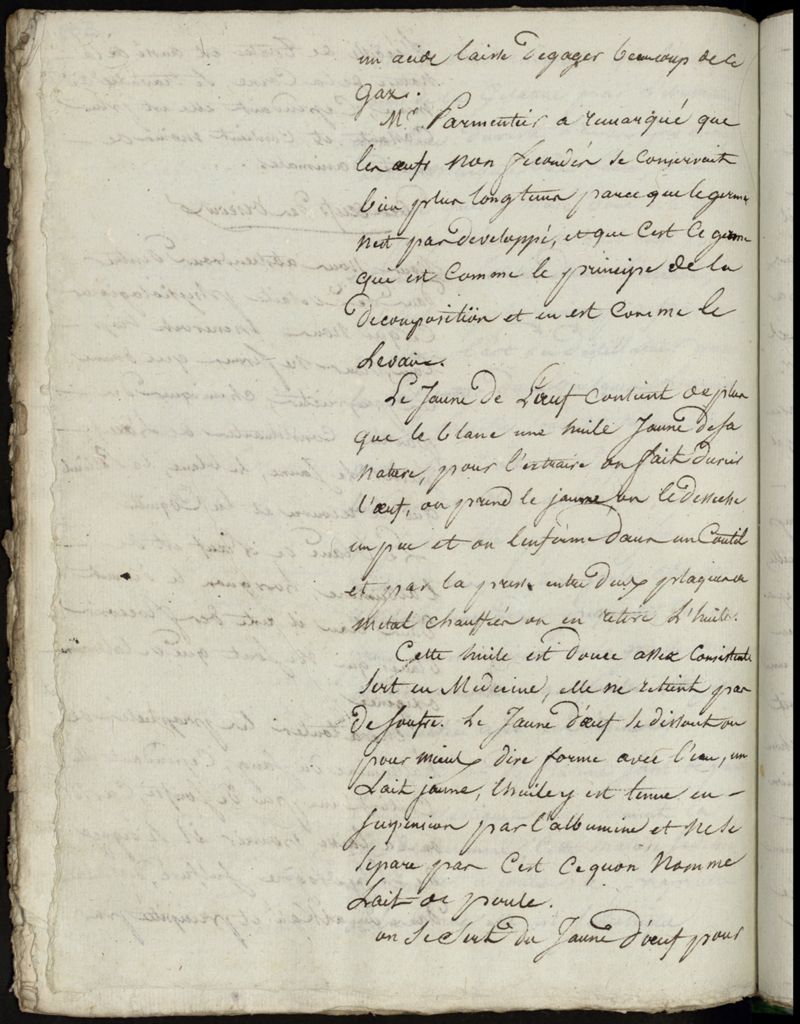 un acide laisse degager beaucoup de ce
Gaz.
Mr. Parmentier a remarqué que
les œufs non fecondés se conservoit
bien plus longtems parce que le germe
nest pas developpé, et que c'est ce germe
qui est comme le principe de la
decomposition et en est comme le
Levain.
Le Jaune de L'œuf contient de plus
que le blanc une huile Jaune de sa
nature, pour l'extraire on fait durcir
l'œuf, on prend le jaune, on le desseche
un peu et on l'enferme dans un Coutil
et par la presse entre deux plaques de
metal chauffées on en retire L'huile.
Cette huile est douce assez consistente
sert en Medecine, elle ne retient pas
de soufre. Le Jaune d'œuf se dissout ou
pour mieux dire forme avec l'eau, un
Lait jaune, l'huile y est tenue en-
suspension par l'albumine et ne se
separe pas c'est ce quon nomme
Lait de poule.
on se sert du Jaune d'œuf pour